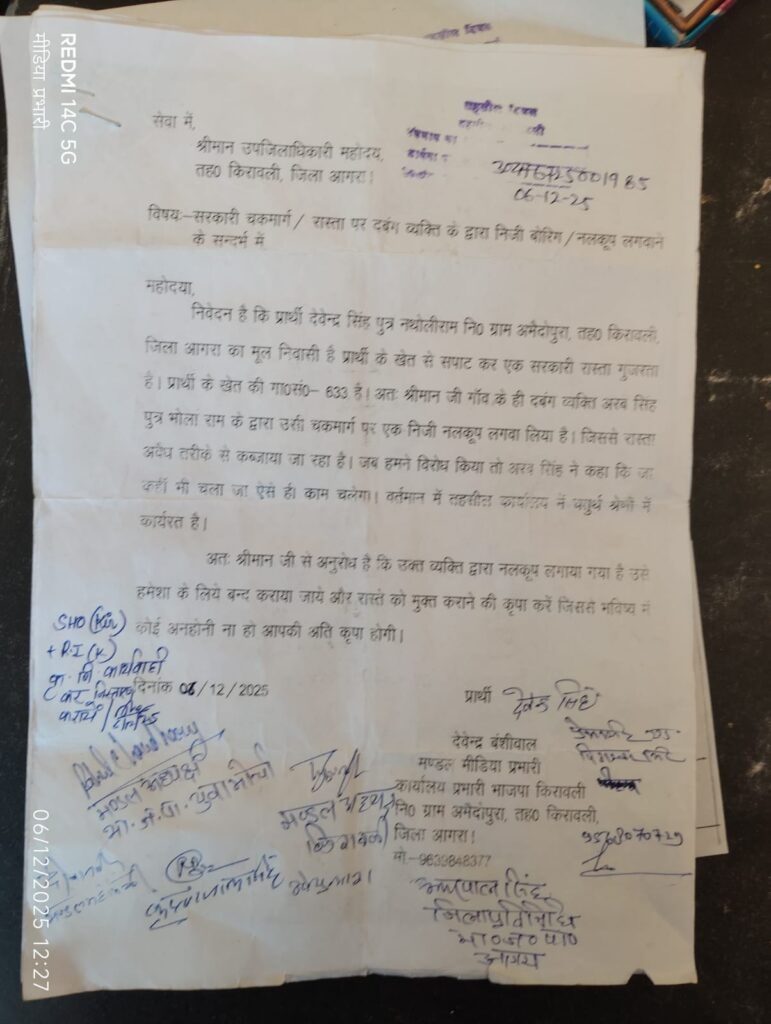 REDMI 14C 5G
मीडिया प्रभारी
तहसील दिवस
सेवा में,
श्रीमान उपजिलाधिकारी महोदय,
तह0 किरावली, जिला आगरा।
06-12-25
विषयः-सरकारी चकमार्ग / रास्ता पर दबंग व्यक्ति के द्वारा निजी बोरिंग / नलकूप लगवाने
के सन्दर्भ में
महोदया,
निवेदन है कि प्रार्थी देवेन्द्र सिंह पुत्र नथोलीराम नि0 ग्राम अमैदोपुरा, तह0 किरावली,
जिला आगरा का मूल निवासी है प्रार्थी के खेत से सपाट कर एक सरकारी रास्ता गुजरता
है। प्रार्थी के खेत की गा0सं0- 633 है। अतः श्रीमान जी गाँव के ही दबंग व्यक्ति अरब सिंह
पुत्र भोला राम के द्वारा उसी चकमार्ग पर एक निजी नलकूप लगवा लिया है। जिससे रास्ता
अवैध तरीके से कब्जाया जा रहा है। जब हमने विरोध किया तो अरब सिंह ने कहा कि जा
कहीं भी चला जा ऐसे ही काम चलेगा। वर्तमान में तहसील कार्यालय में चतुर्थ श्रेणी में
कार्यरत है।
अतः श्रीमान जी से अनुरोध है कि उक्त व्यक्ति द्वारा नलकूप लगाया गया है उसे
हमेशा के लिये बन्द कराया जाये और रास्ते को मुक्त कराने की कृपा करें जिससे भविष्य में
कोई अनहोनी ना हो आपकी अति कृपा होगी।
SHO (Kir)
+ R.I (K)
कृ. नि. कार्यवाही
कर
करायें
दिनांक 06/12/2025
प्रार्थी देवेन्द्र सिंह
देवेन्द्र बंशीवाल
मण्डल मीडिया प्रभारी
कार्यालय प्रभारी भाजपा किरावली
नि0 ग्राम अमैदोपुरा, तह0 किरावली,
जिला आगरा।
मो.-9639848377
मण्डल अध्यक्ष
भा. ज. पा. युवा मोर्चा
मण्डल अध्यक्ष
किरावली
जिला प्रतिनिधि
भा0ज0पा0
आगरा
06/12/2025 12:27